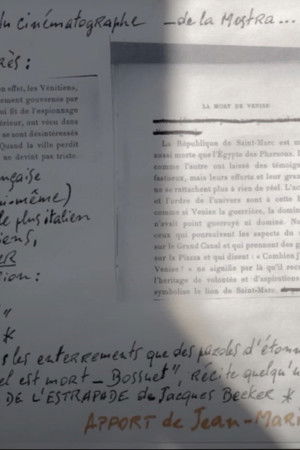 du cinématographe — de la Mostra...
rès :
en effet, les Vénitiens,
ement gouvernés par
qui fit de l'espionnage
érieur, ont vécu dans
ne sont désintéressés
Quand la ville perdit
ne devint pas triste.
LA MORT DE VENISE
La République de Saint-Marc est m
aussi morte que l'Égypte des Pharaons. L
comme l'autre ont laissé des témoign
fastueux, mais leurs efforts et leur gran
ne se rattachent plus à rien de réel. L'
et l'ordre de l'univers sont à cette
comme si Venise la guerrière, la domin
n'avait point guerroyé ni dominé. No
ceux qui poursuivent les aspects du
sur le Grand Canal et qui prennent des
sur la Piazza et qui disent : « Combien j'
Venise ! » ne signifie par là qu'il recu
l'héritage de volontés et d'aspirations
symbolise le lion de Saint-Marc.
nçaise
-même)
le plus italien
iens,
ER
ion :
"
*
s les enterrements que des paroles d'étonn
el est mort — Bossuet", récite quelqu'u
DE L'ESTRAPADE de Jacques Becker *
APPORT de Jean-Mar